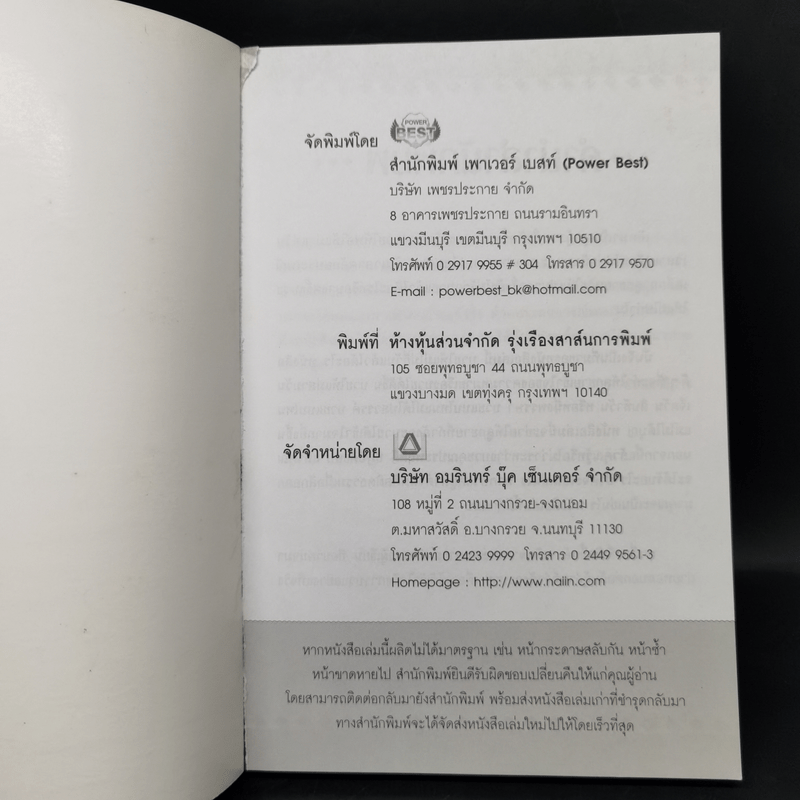 จัดพิมพ์โดย POWER BEST
สำนักพิมพ์ เพาเวอร์ เบสท์ (Power Best)
บริษัท เพชรประกาย จำกัด
8 อาคารเพชรประกาย ถนนรามอินทรา
แขวงมีนบุรี เขตมีนบุรี กรุงเทพฯ 10510
โทรศัพท์ 0 2917 9955 # 304 โทรสาร 0 2917 9570
E-mail : powerbest_bk@hotmail.com
พิมพ์ที่ ห้างหุ้นส่วนจำกัด รุ่งเรืองสาส์นการพิมพ์
105 ซอยพุทธบูชา 44 ถนนพุทธบูชา
แขวงบางมด เขตทุ่งครุ กรุงเทพฯ 10140
จัดจำหน่ายโดย
บริษัท อมรินทร์ บุ๊ค เซ็นเตอร์ จำกัด
108 หมู่ที่ 2 ถนนบางกรวย-จงถนอม
ต.มหาสวัสดิ์ อ.บางกรวย จ.นนทบุรี 11130
โทรศัพท์ 0 2423 9999 โทรสาร 0 2449 9561-3
Homepage : http://www.naiin.com
หากหนังสือเล่มนี้ผลิตไม่ได้มาตรฐาน เช่น หน้ากระดาษสลับกัน หน้าซ้ำ
หน้าขาดหายไป สำนักพิมพ์ยินดีรับผิดชอบเปลี่ยนคืนให้แก่คุณผู้อ่าน
โดยสามารถติดต่อกลับมายังสำนักพิมพ์ พร้อมส่งหนังสือเล่มเก่าที่ชำรุดกลับมา
ทางสำนักพิมพ์จะได้จัดส่งหนังสือเล่มใหม่ไปให้โดยเร็วที่สุด